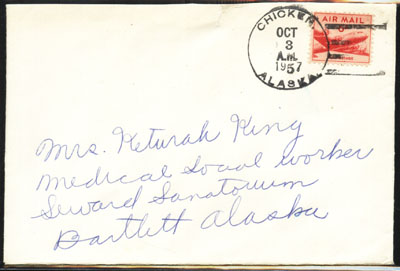 CHICKEN,
OCT
3
A.M.
1957
ALASKA
AIR MAIL
6¢
Mrs. Keturah King
Medical Social Worker
Seward Sanatorium
Bartlett Alaska